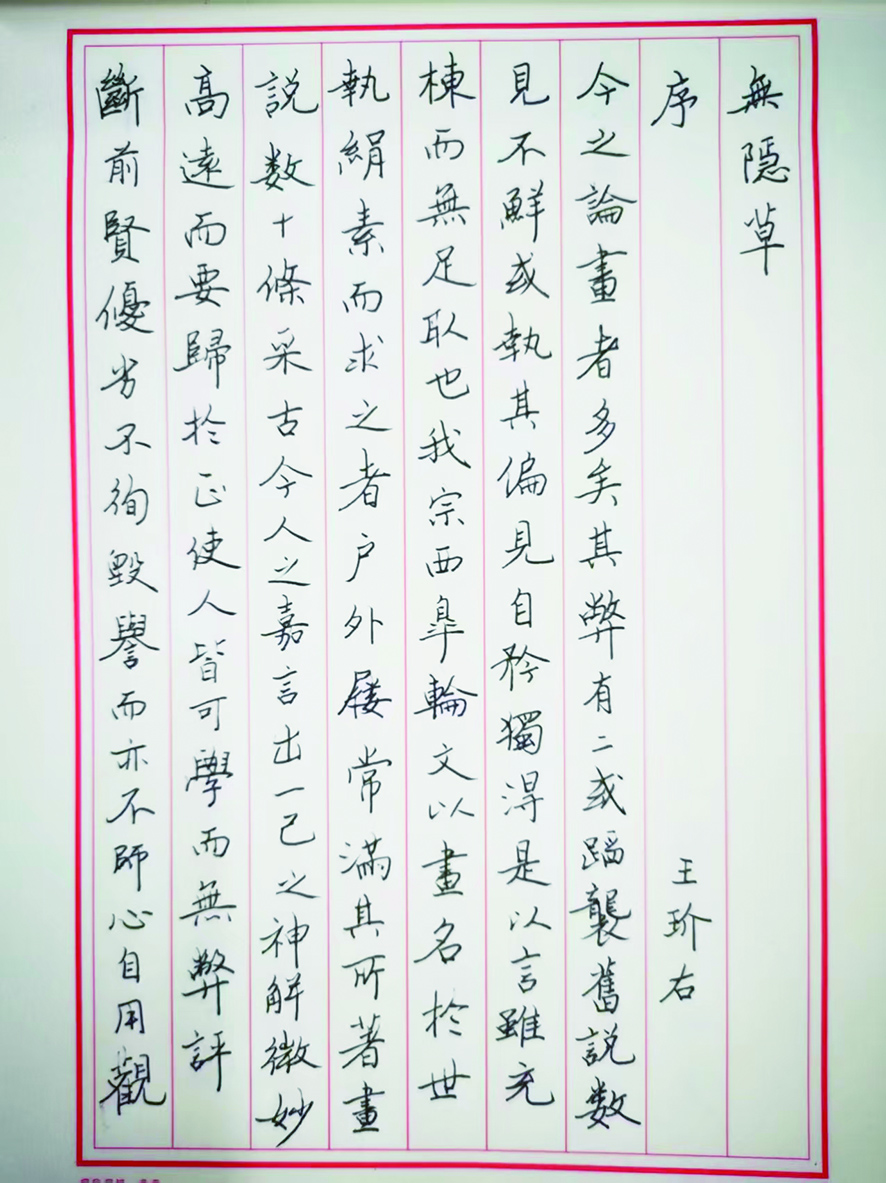 無隱草
序 王玠右
今之論畫者多矣其弊有二或蹈襲舊説数
見不鮮或執其偏見自矜獨得是以言雖充
棟而無足取也我宗西臯輪文以畫名於世
執絹素而求之者户外屨常滿其所著畫
説数十條采古今人之嘉言出一己之神解微妙
高遠而要歸於正使人皆可學而無弊評
斷前賢優劣不徇毀譽而亦不師心自用觀